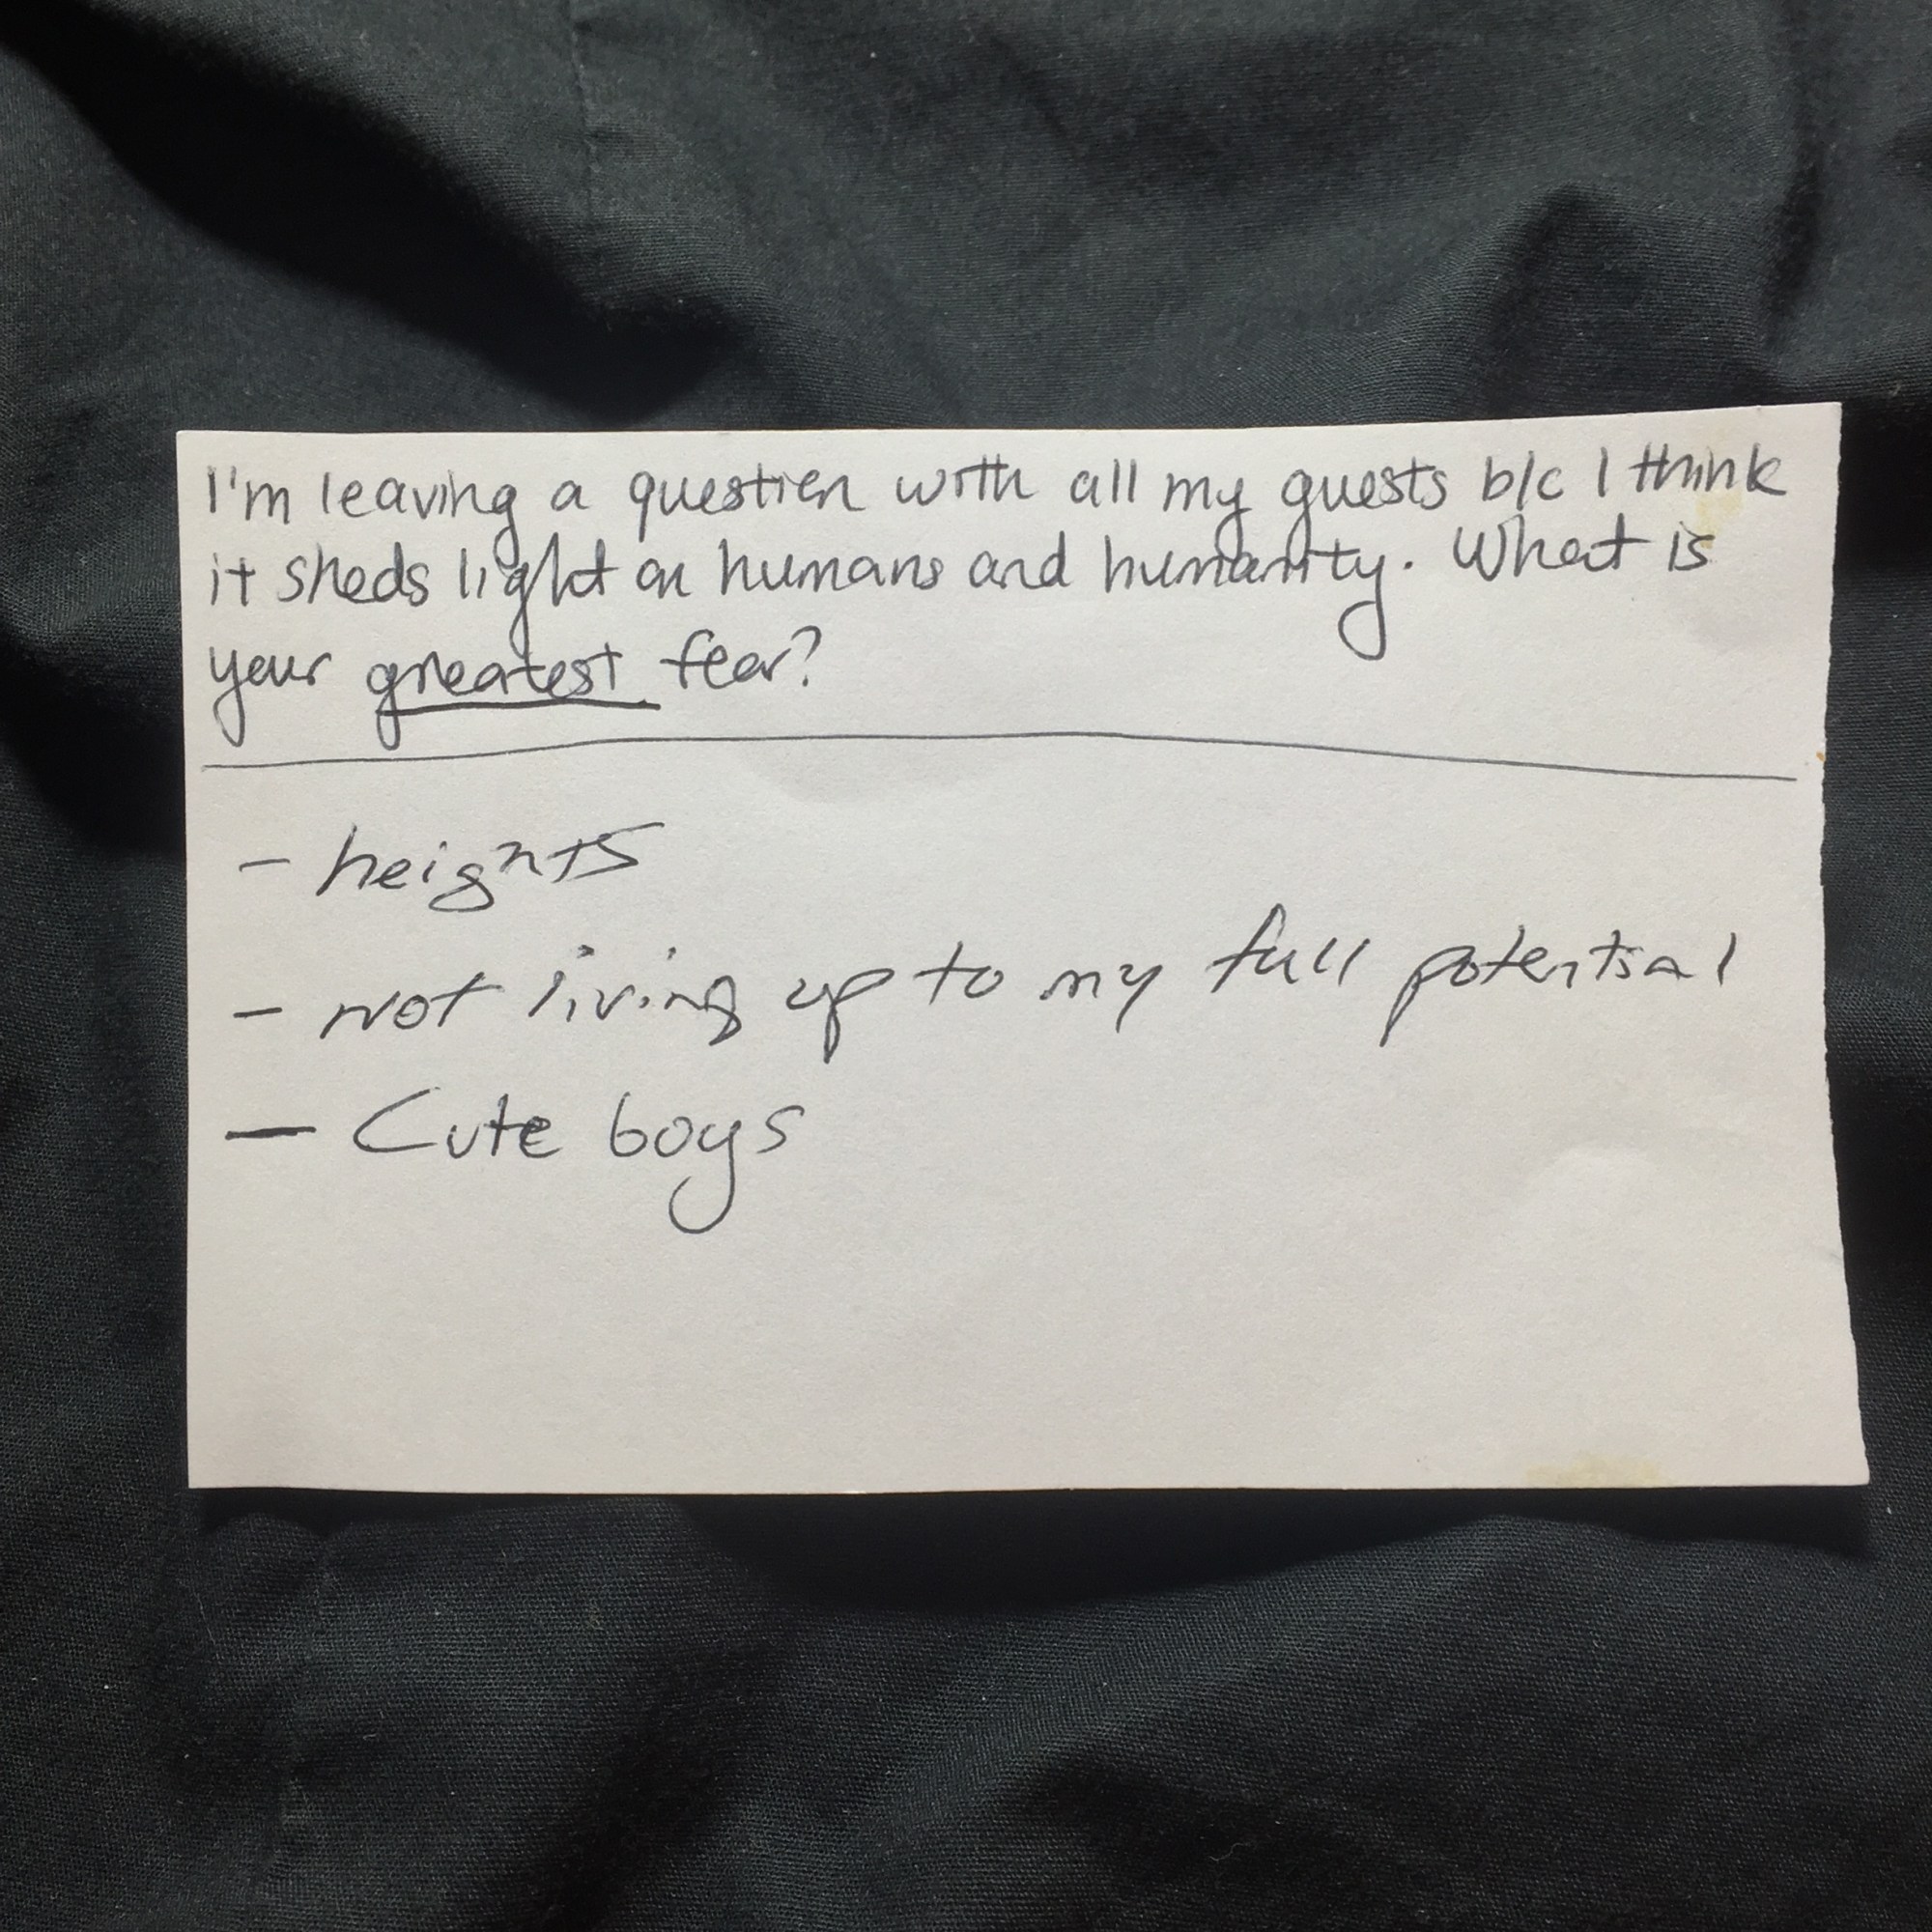 I'm leaving a question with all my guests b/c I think
it sheds light on humans and humanity. What is
your greatest fear?
- heights
- not living up to my full potential
- Cute boys